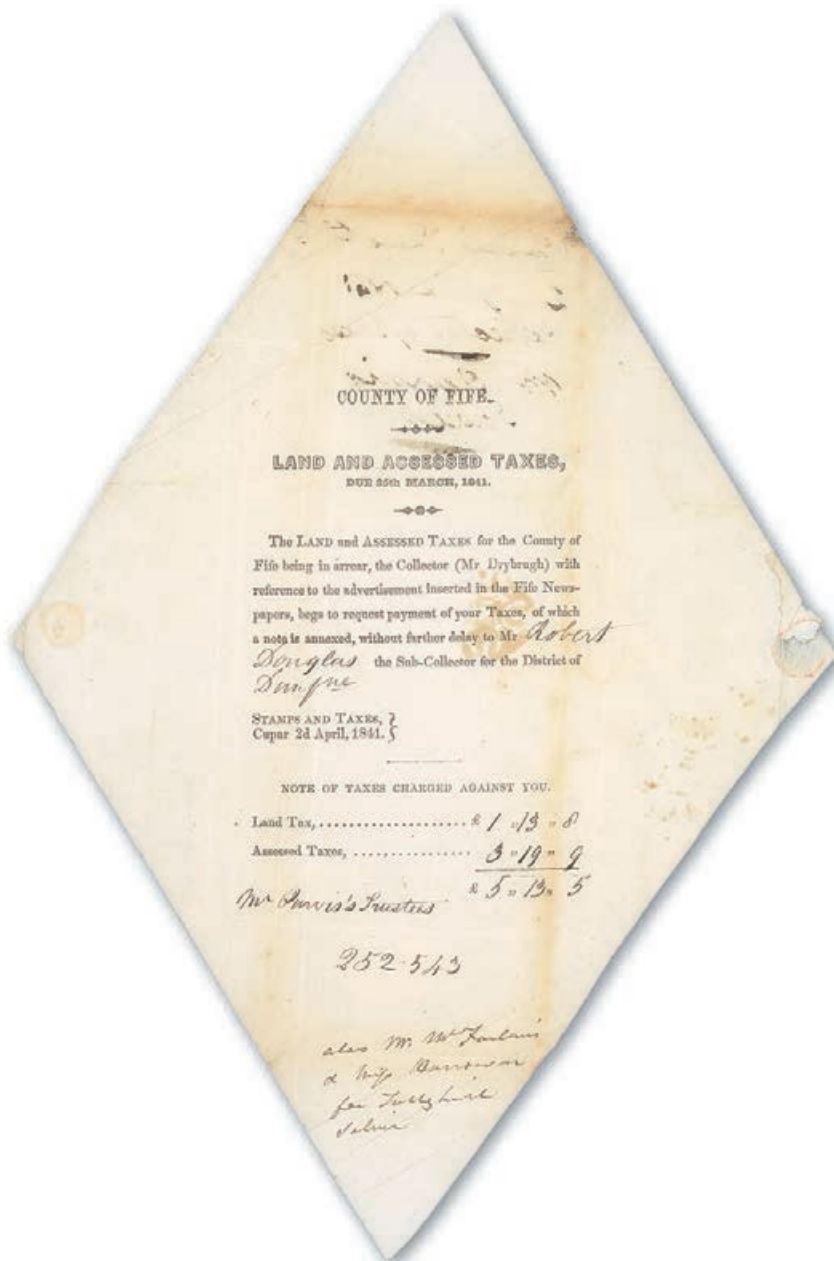 COUNTY OF FIFE.
LAND AND ASSESSED TAXES,
DUE 25th MARCH, 1841.
The LAND and ASSESSED TAXES for the County of
Fife being in arrear, the Collector (Mr Drybrugh) with
reference to the advertisement inserted in the Fife News-
papers, begs to request payment of your Taxes, of which
a note is annexed, without farther delay to Mr Robert
Douglas the Sub-Collector for the District of
STAMPS AND TAXES, }
Cupar 2d April, 1841. }
NOTE OF TAXES CHARGED AGAINST YOU.
Land Tax, ..................... £ 1 " 13 " 8
Assessed Taxes, ............... 3 " 19 " 9
£ 5 " 13 " 5
Mr Purvis's Trustees
252.543
also Mr
& Miss
for